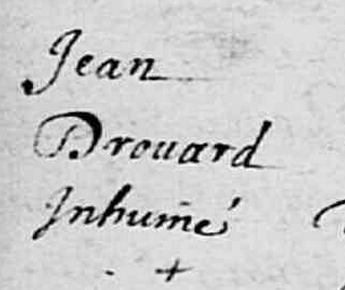 Jean
Drouard
Inhumé
+